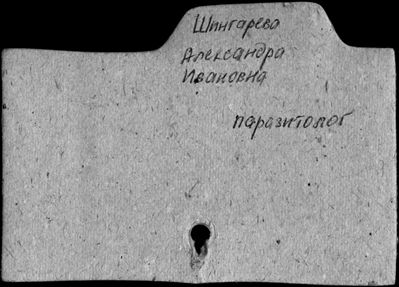 Шингарева
Александра
Ивановна
паразитолог